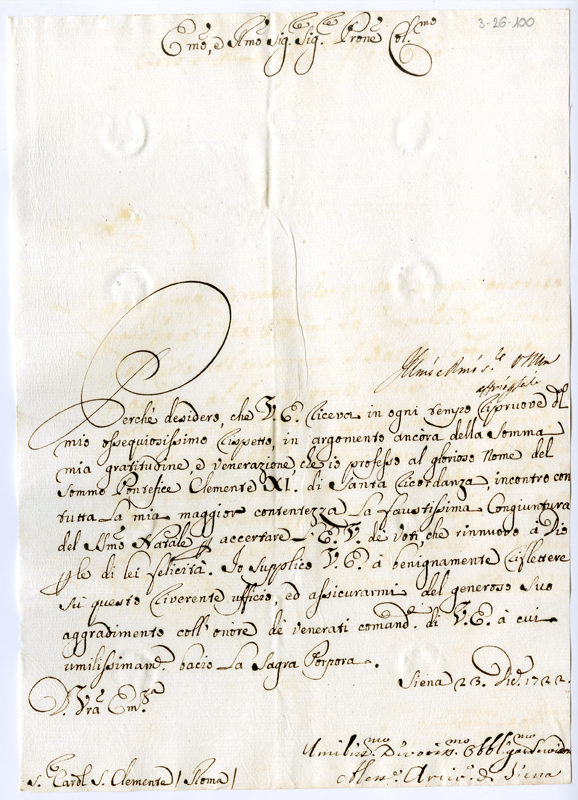 3-26-100
Emo, e Rmo Sig. Sig. Prone Col.mo
Perche desidero, che V. E. riceva in ogni tempo ripruove del
mio ossequiosissimo rispetto, in argomento ancora della somma
mia gratitudine, e venerazione che io professo al glorioso Nome del
Sommo Pontefice Clemente XI. di Santa Ricordanza, incontro con
tutta La mia maggior contentezza La faustissima Congiuntura
del Smo Natale p accertare L'E. V. de voti, che rinnuovo à Dio
p le di lei felicità. Io supplico V. E. à benignamente riflettere
sù questo riverente ufficio, ed assicurarmi del generoso suo
aggradimento coll'onore de venerati comand. di V. E. à cui
umilissimam.te bacio La Sagra Porpora.
Siena 23. Dic.e 1722.
D. Vra Em.a
Umiliss.mo Divotis.mo Obblig.mo
Aless.o Arciv.o di Siena
S. Card. S. Clemente / Roma /